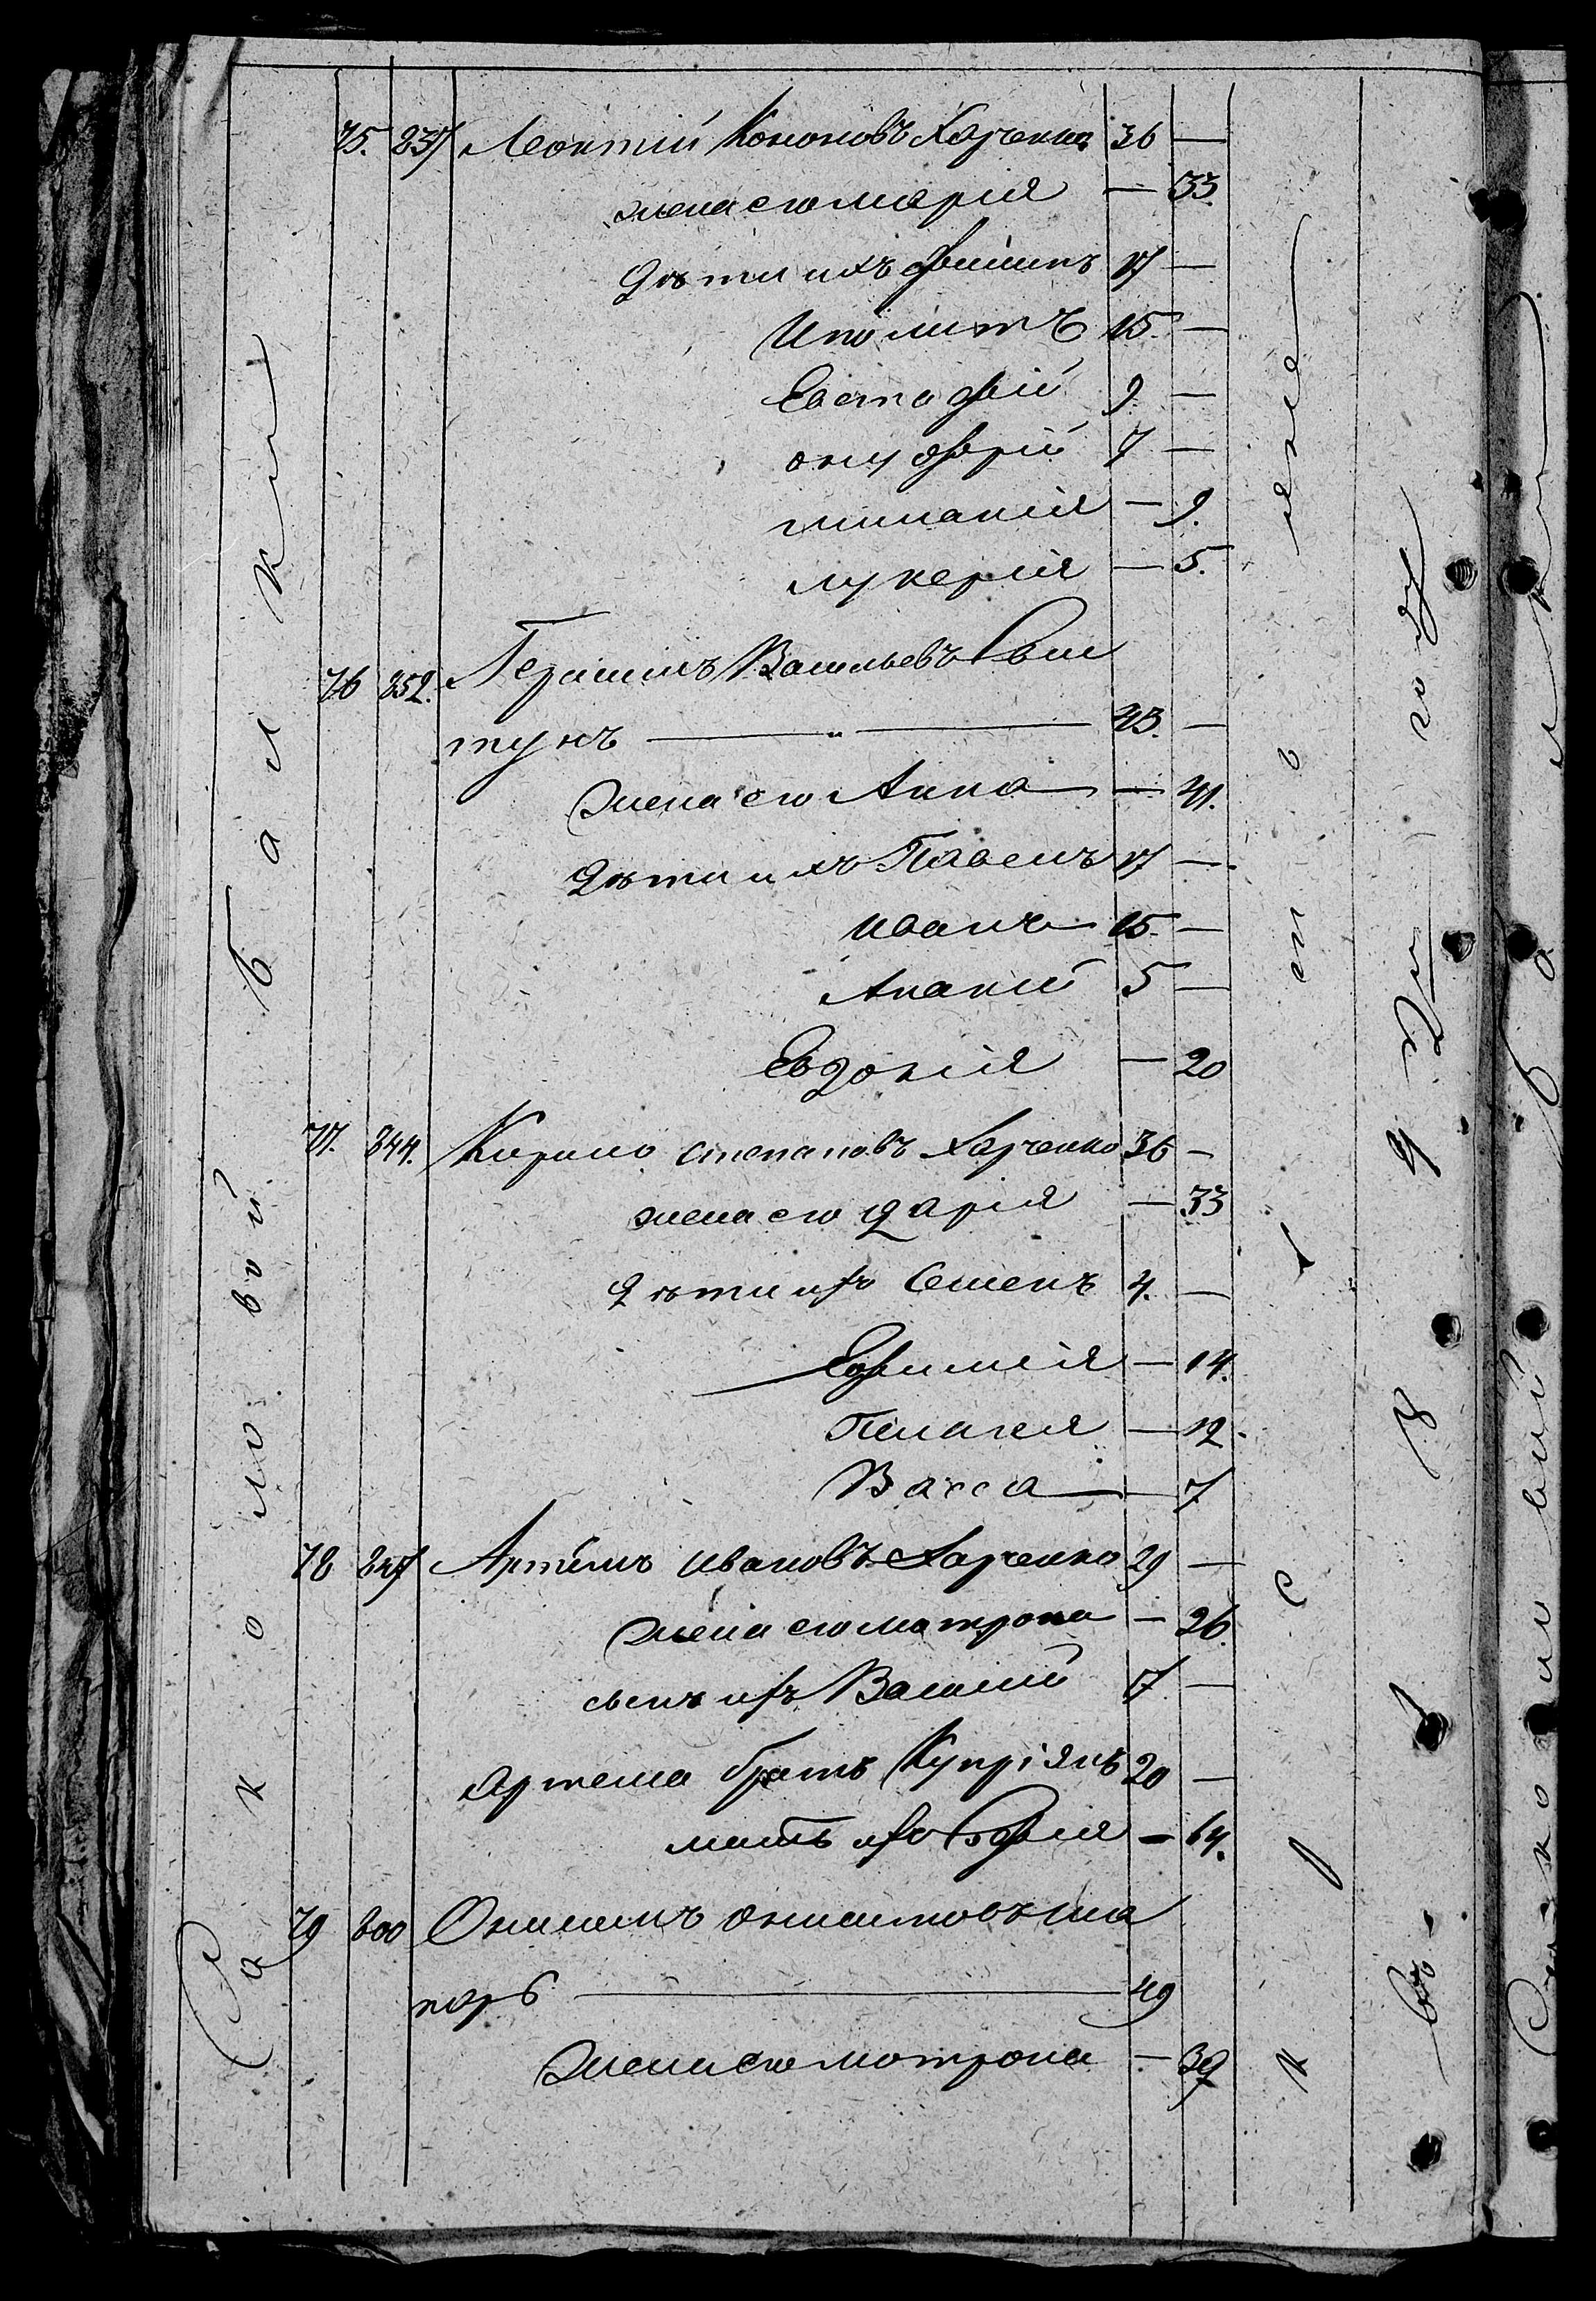 75. 237 Леонтий Кононовъ Харченко 36 —
жена его Марія — 33
дѣти ихъ Филипъ 17 —
Иполитъ 15. —
Евстафій 9 —
Онуфрій 7 —
— 9.
Лукерія — 5.
76 252. Герасимъ Васильевъ Сви
тукъ — 43. —
Жена его Анна — 41.
Дѣти ихъ Павелъ 17 —
Иванъ 15. —
Ананій 5 —
Евдокія — 20
77. 244. Кирило Степановъ Харченко 36 —
жена его Дарія — 33
дѣти ихъ Семенъ 4. —
Ефимія — 14.
Пелагея — 12
Васса — 7
78 247 Артемъ Ивановъ Харченко 29 —
Жена его Матрона — 26.
сынъ ихъ Василій 7 —
Артема братъ Купріянъ 20 —
мать ихъ Софія — 64.
79 Онисимъ Онисимовъ Ша
поръ — 49
Жена его Матрона — 39
Соколовой Балки
крестьяне
въ 18 году